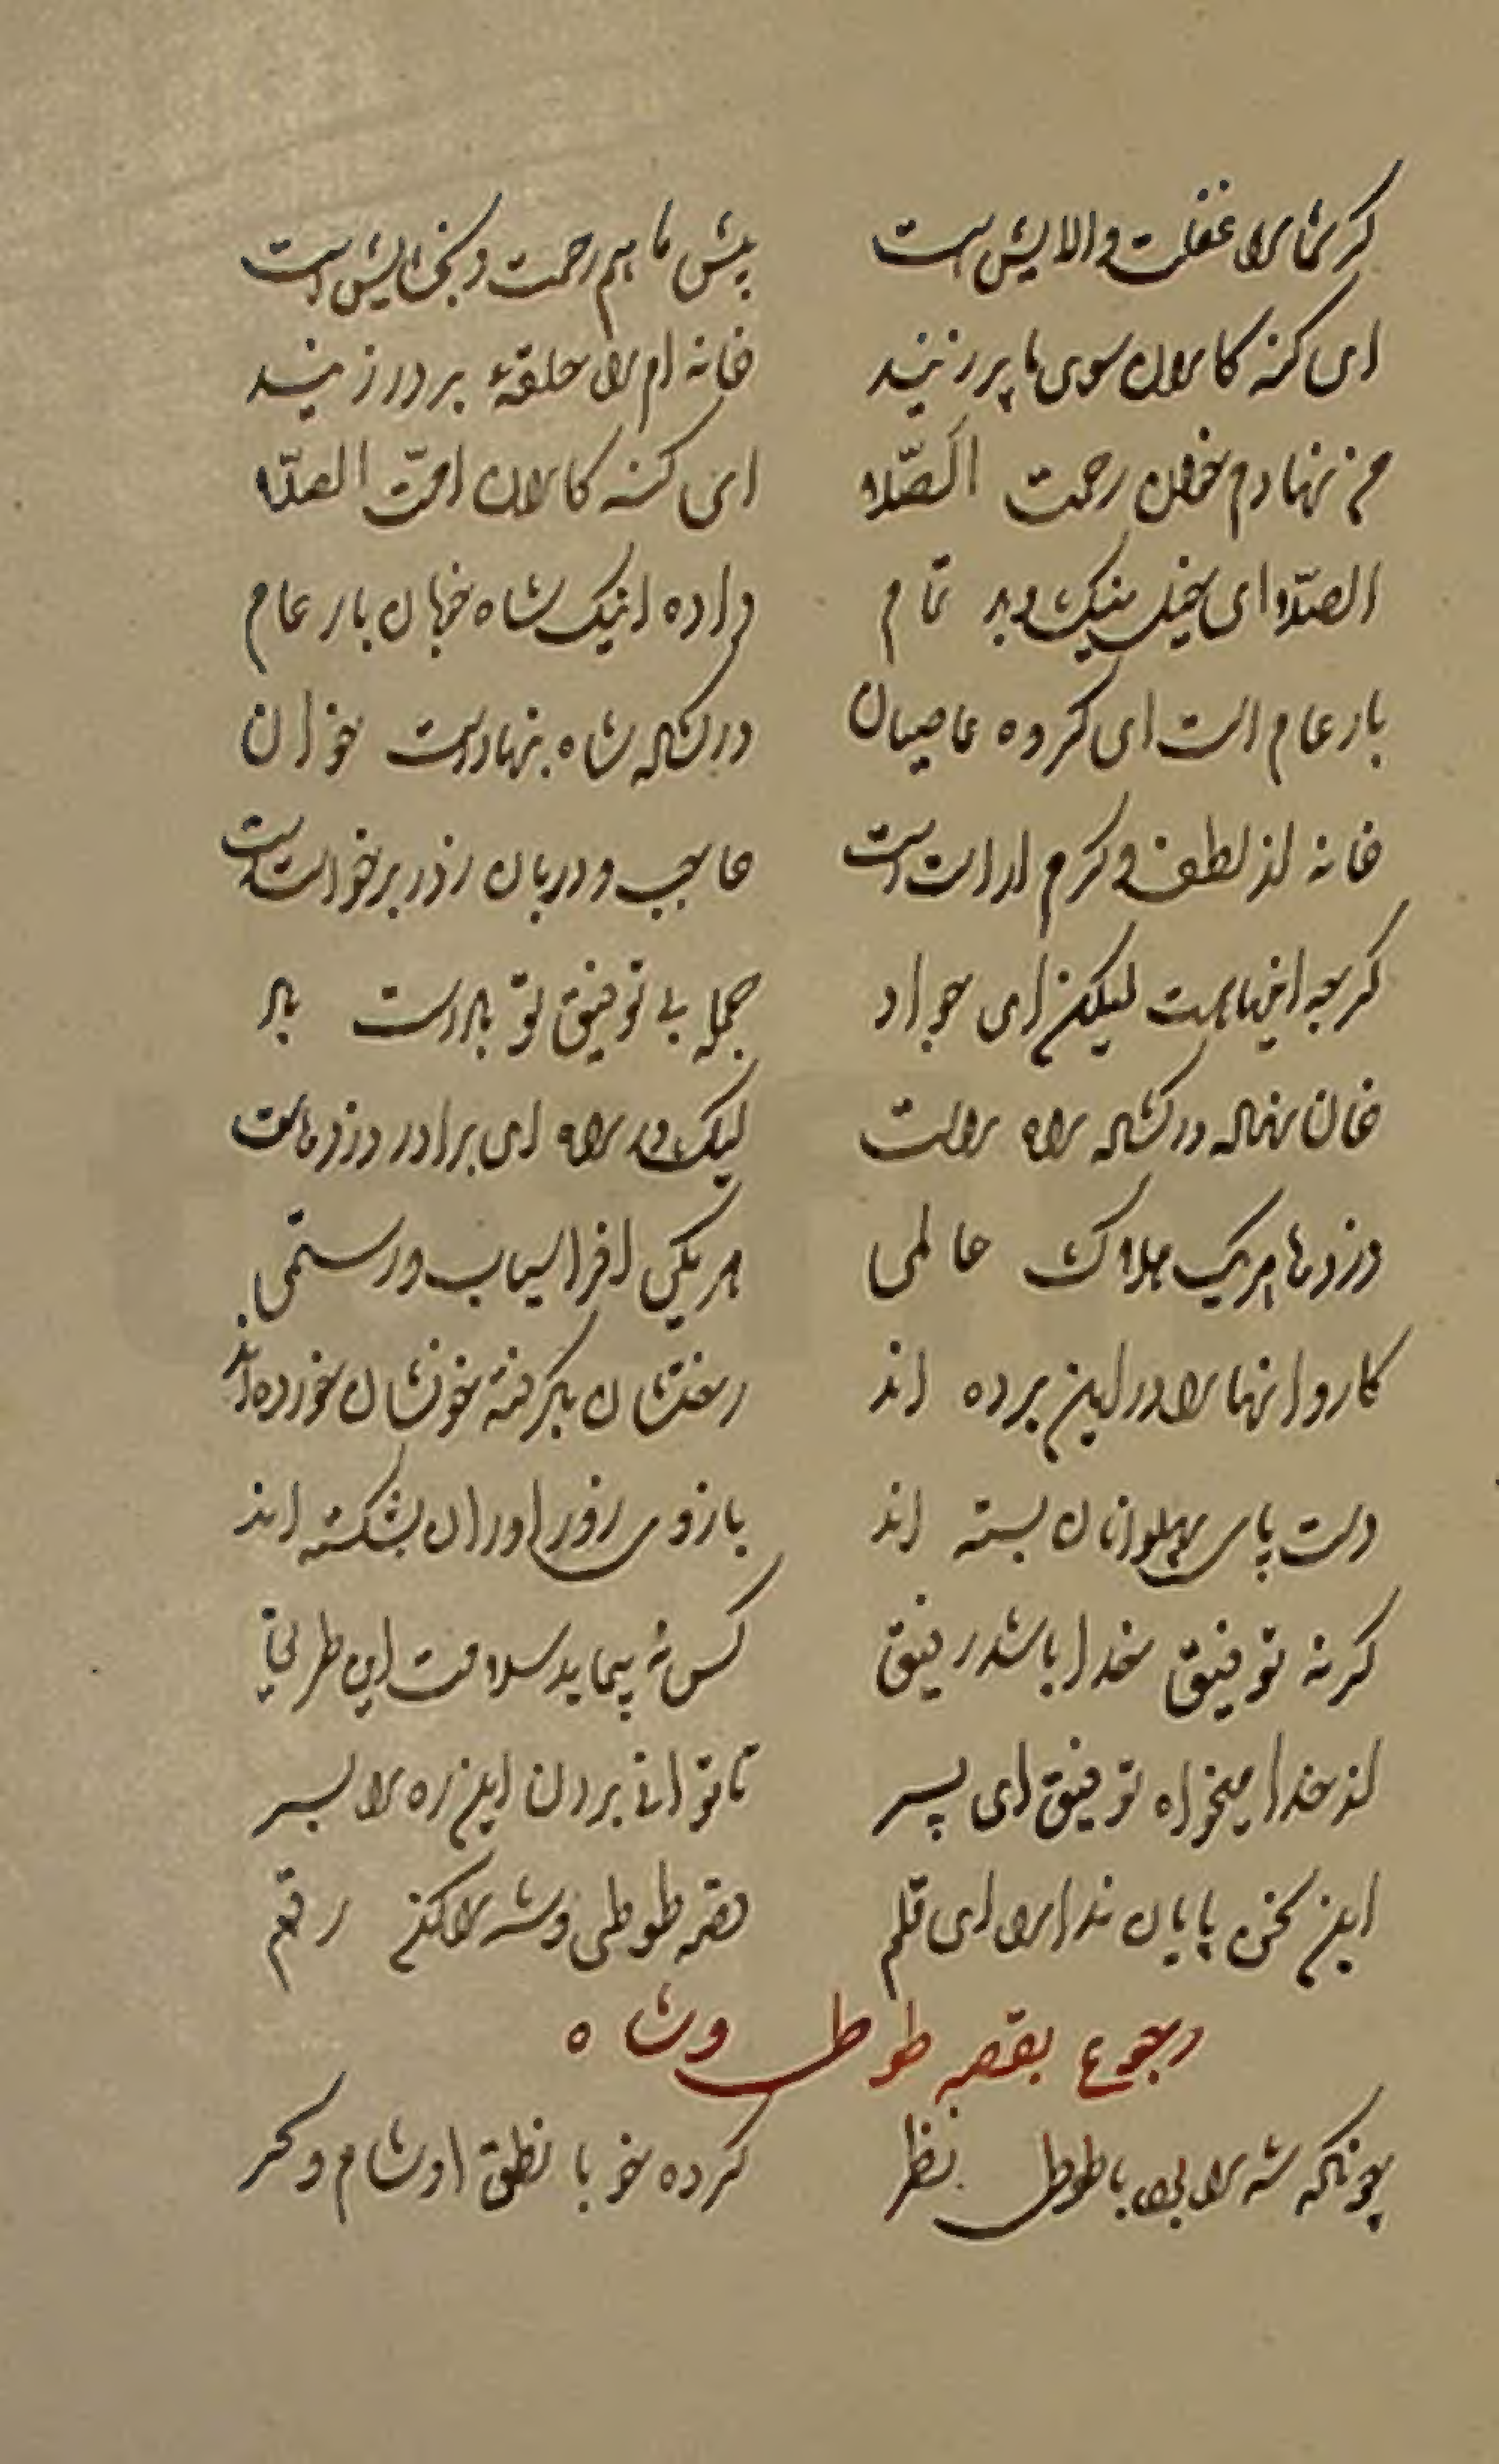 کر شما را غفلت و الایش است پیش ما هم رحمت و بخشایش است
ای کنه کاران سوی ما پر زنید خانه ام را حلقهٔ بر در زنید
من نهادم خوان رحمت الصّلا ای کنه کاران امّت الصّلا
الصّلا ای خیل نیک و بد تمام داده اینک شاه خوبان بار عام
بار عام است ای کروه عاصیان در کشاده شاه بنهاده است خوان
خانه از لطف و کرم اراسته است حاجب و دربان ز در برخواسته است
کرچه اینها هست لیکن ای جواد جمله بی توفیق تو باد است باد
خان نهاده در کشاده راه راست لیک در راه ای برادر دزدهاست
دزدها هر یک هلاک عالمی هر یکی افراسیاب و رستمی
کاروانها را در این ره برده اند رختشان بکرفته خونشان خورده اند
دست پای پهلوانان بسته اند بازوی زور اوران بشکسته اند
کر نه توفیق خدا باشد رفیق کس نه پیماید سلامت این طریق
از خدا میخواه توفیق ای پسر تا توانی بردن این ره را بسر
این سخن پایان ندارد ای قلم قصه طوطی و شه را کن رقم
رجوع بقصه طوطی و شاه
چونکه شه را بود با طوطی نظر کرده خو با نطق او شام و سحر